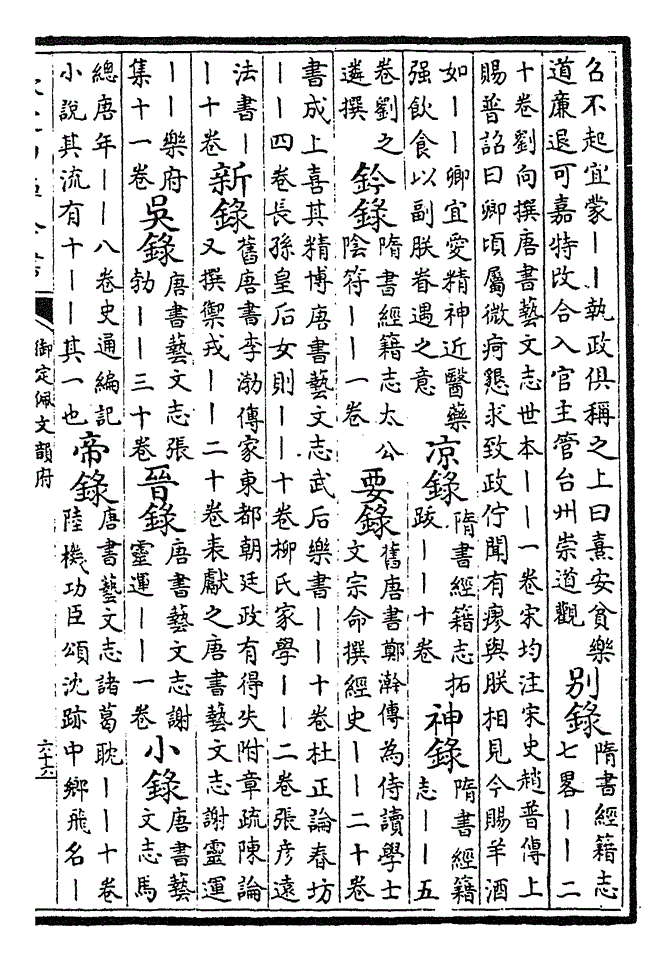 召不起宜蒙——執政俱稱之上曰熹安貧樂
道廉退可嘉特改合入官主管台州崇道觀
別錄
隋書經籍志
七畧——二
十卷劉向撰唐書藝文志世本——一卷宋均注宋史趙普傳上
賜普詔曰卿頃屬微疴懇求致政佇聞有瘳與朕相見今賜羊酒
如——卿宜愛精神近醫藥
强飲食以副朕眷遇之意
凉錄
隋書經籍志拓
跋——十卷
神錄
隋書經籍
志——五
卷劉之
遴撰
鈐錄
隋書經籍志太公
陰符——一卷
要錄
舊唐書鄭瀚傳為侍讀學士
文宗命撰經史——二十卷
書成上喜其精博唐書藝文志武后樂書——十卷杜正論春坊
——四卷長孫皇后女則——十卷柳氏家學——二卷張彦遠
法書—
—十卷
新錄
舊唐書李渤傳家東都朝廷政有得失附章疏陳論
又撰禦戎——二十卷表獻之唐書藝文志謝靈運
——樂府
集十一卷
吳錄
唐書藝文志張
勃——三十卷
晉錄
唐書藝文志謝
靈運——一卷
小錄
唐書藝
文志馬
總唐年——八卷史通編記
小說其流有十——其一也
帝錄
唐書藝文志諸葛耽——十卷
陸機功臣頌沈跡中鄉飛名—
御定佩文韻府
六十六